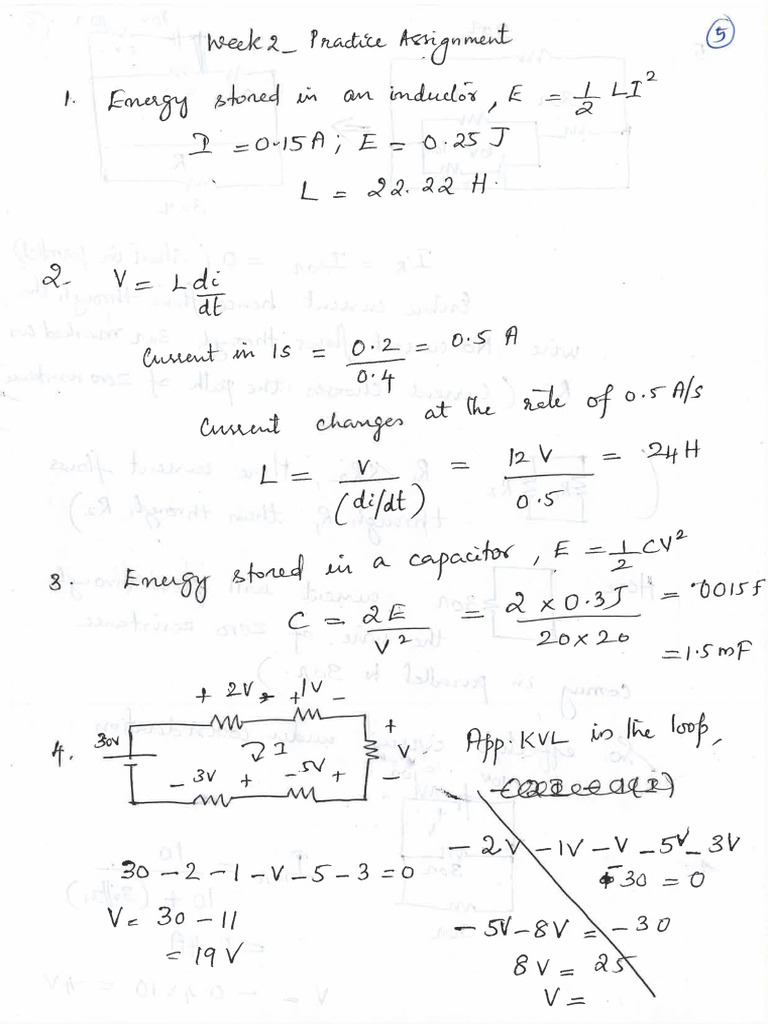 Week 2_ Practice Assignment
5
1. Energy stored in an inductor, E = 1/2 LI²
I = 0.15A; E = 0.25 J
L = 22.22 H.
2. V = L di/dt
Current in 1s = 0.2/0.4 = 0.5 A
Current changes at the rate of 0.5 A/s
L = V/(di/dt) = 12V/0.5 = 24H
3. Energy stored in a capacitor, E = 1/2 CV²
C = 2E/V² = 2 x 0.3J/20x20 = .0015f
=1.5mF
4.
+ 2V - + 1V -
30V
I
+ V -
- 3V + - 5V +
App. KVL in the loop,
- 2V - 1V - V - 5V - 3V
30 = 0
- 5V - 8V = - 30
8V = 25
V =
30 - 2 - 1 - V - 5 - 3 = 0
V = 30 - 11
= 19 V